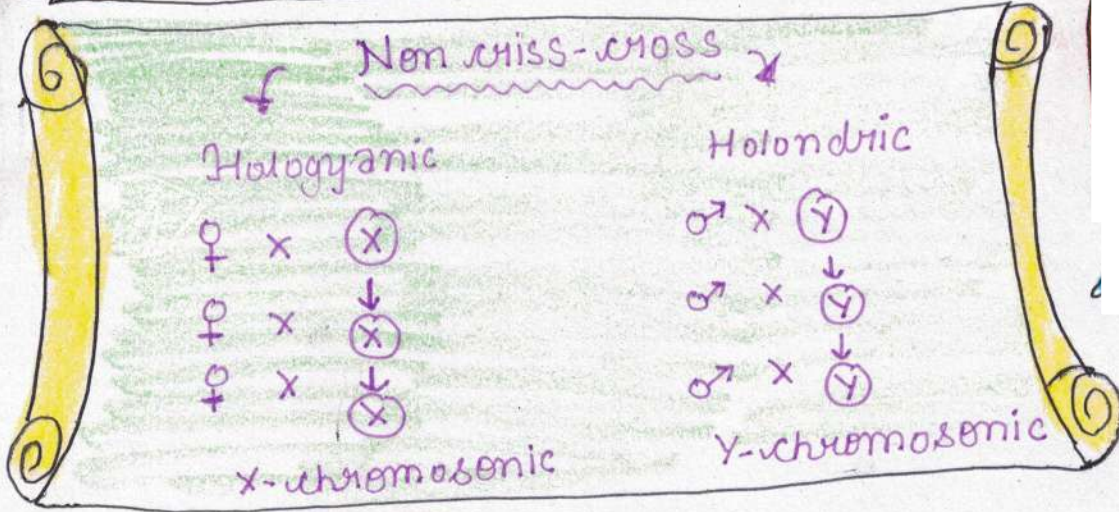 Non criss-cross
Hologyanic
♀ × X
↓
♀ × X
↓
♀ × X
X-chromosonic
Holondric
♂ × Y
↓
♂ × Y
↓
♂ × Y
Y-chromosonic